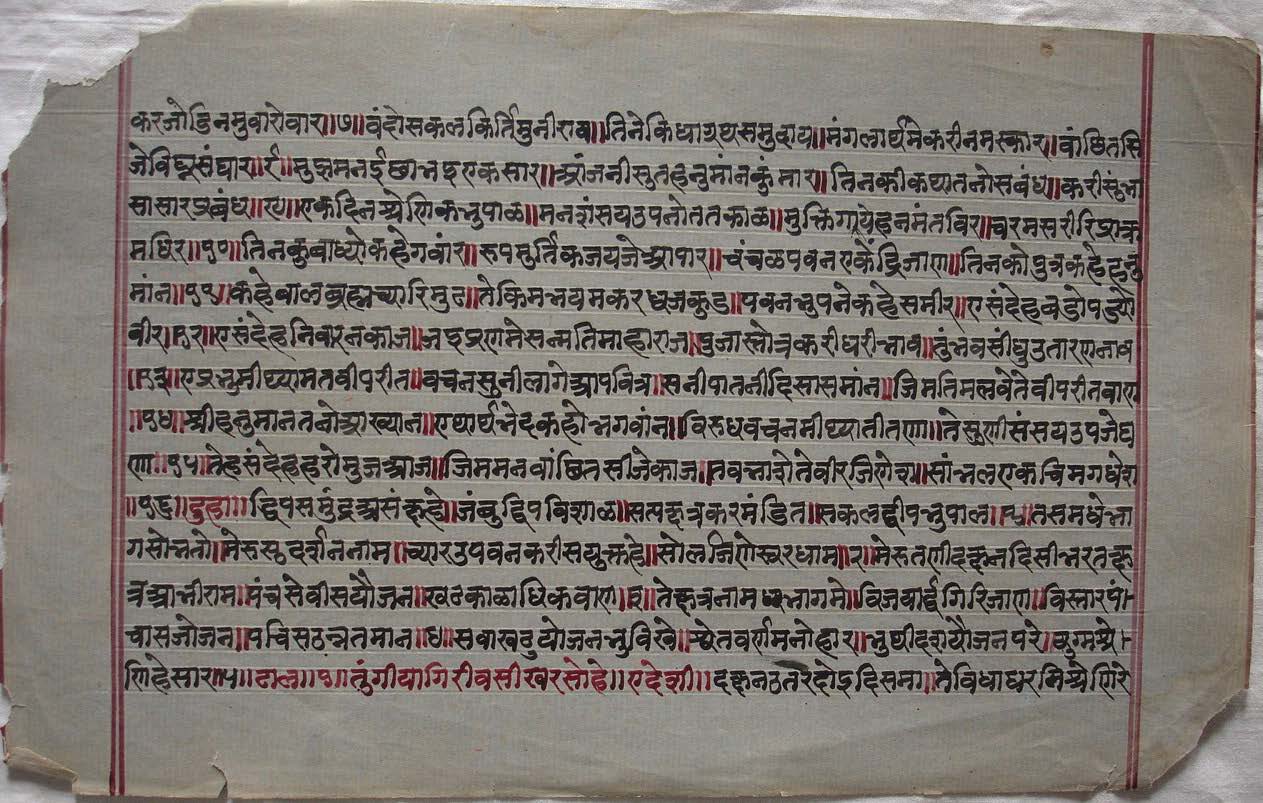 करजोडिनमुवारोवार॥७॥वंदोसकलकिर्तिमुनीराय॥तिनेकिधाग्रंथसमुदाय॥मंगलार्थमेकरीनमस्कार॥वांछितसि
जेविघ्नसंघार॥८॥मुझमनईछाभइएकसार॥आंजनीसुतहनुमांनकुंमार॥तिनकीकथातनोसबंध॥करीसुंभा
सासारप्रबंध॥९॥एकदिनश्रेणिकभुपाळ॥मनशंसयउपनोततकाळ॥मुक्तिगायेहनमंतविर॥चरमसरीरिप्राक्र
मधिर॥१०॥तिनकुवाध्योकहेगवांर॥रुपमुर्तिकजयजेआपार॥चंचळपवनएकेंद्रिजाण॥तिनकोपुत्रकहेहनु
मांन॥११॥कहेबालब्रह्मच्यारिमुढ॥तेकिमभयमकरधजकुड॥पवनभुपनेकहेसमीर॥एसंदेहबडोपड्यो
वीर॥१२॥एसंदेहनिवारनकाज॥जइप्रणमेसन्मतिमाहाराज॥पुजास्तोत्रकरीधरीभाव॥तुंभवसींधुउतारणनाव
॥१३॥एप्रभुमीथ्यामतवीपरीत॥वचनसुनीलागेआपवित्र॥सनीपातनीदिसासमांन॥जिमतिमलवेतेवीपरीतवाण
॥१४॥श्रीहनुमानतनोआख्यान॥एथार्थभेदकहोभगवांन॥विरुधवचनमीथ्यातीतणा॥तेसुणीसंसयउपजेघ
णा॥१५॥तेहसंदेहहरोमुजआज॥जिममनवांछितसीजेकाज॥तवभाशेतेवीरजिणेश॥सांभलएकचिमगधेश
॥१६॥दुहा॥द्विपसमुंद्रअसंक्षहे॥जंबुद्विपविशाळ॥सत्पक्षत्रकरमंडित॥सकलद्वीपभुपाल॥१॥तसमधेभा
गसोभतो॥मेरुसुदर्शननाम॥च्यारउपवनकरीसयुक्तहे॥सोलजिणेस्वरधाम॥२॥मेरुतणीदक्षनदिसी॥भरतक्ष
त्रआभीराम॥पंचसेवीसयौजन॥खटकाळाधिकवाण॥३॥तेक्षत्रनाममध्यभागमे॥विजयार्द्धगिरिजाण॥विस्तारपं
चासजोजन॥पचिसठन्नतमान॥४॥सवाखटुयोजनभुविखे॥श्वेतवर्णमनोहार॥भुथीदशयौजनपरे॥युग्मश्रे
णिहेसार॥५॥ढाल॥१॥तुंगीयागिरीवसीखरसोहे॥एदेशी॥दक्षनउतरदोइदिसमा॥तेविधाधरमिश्रेणिरे